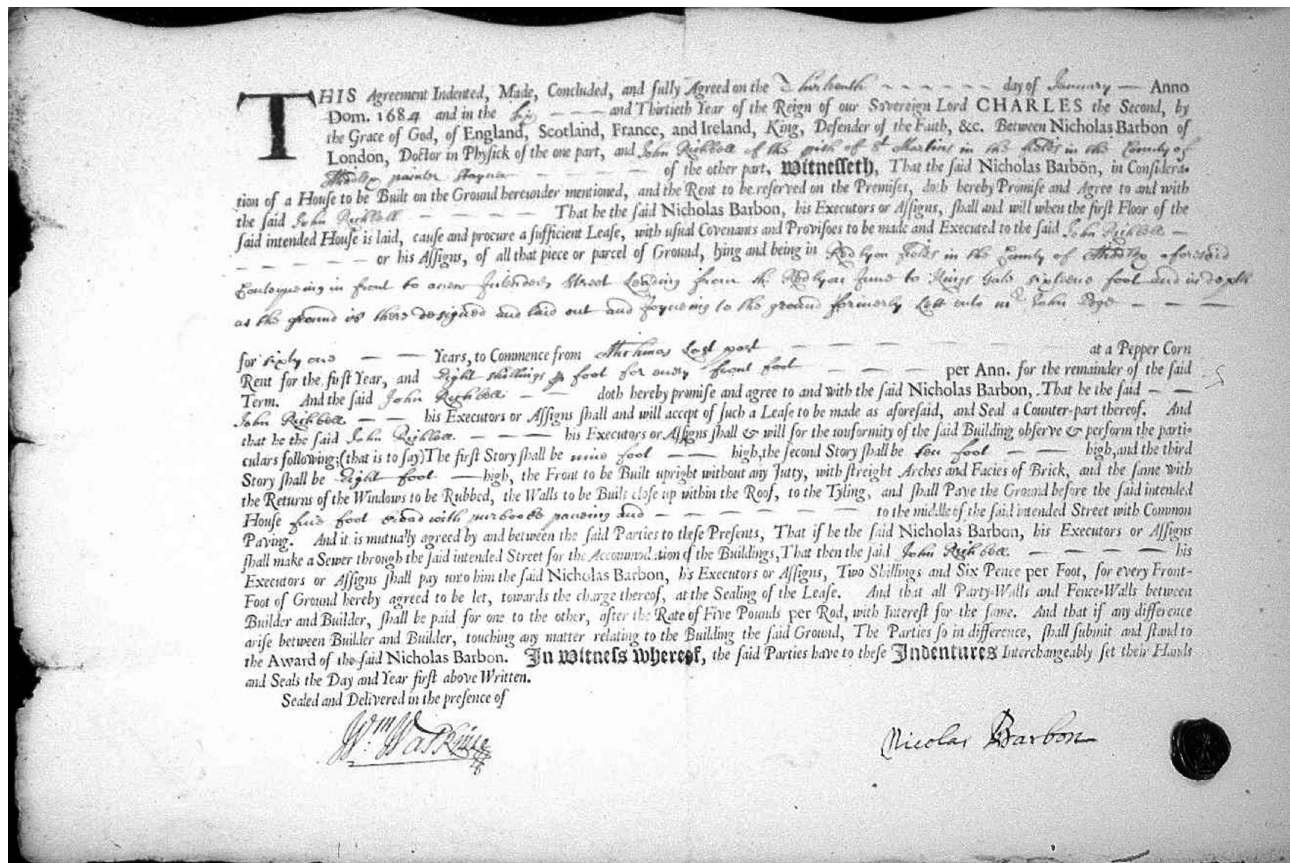 THIS Agreement Indented, Made, Concluded, and fully Agreed on the Thirteenth day of January Anno
Dom. 1684 and in the Six and Thirtieth Year of the Reign of our Sovereign Lord CHARLES the Second, by
the Grace of God, of England, Scotland, France, and Ireland, King, Defender of the Faith, &c. Between Nicholas Barbon of
London, Doctor in Physick of the one part, and John of the of St Martins in the ffields in the County of
of the other part, Witnesseth, That the said Nicholas Barbon, in Considera-
tion of a House to be Built on the Ground hereunder mentioned, and the Rent to be reserved on the Premises, doth hereby Promise and Agree to and with
the said John That he the said Nicholas Barbon, his Executors or Assigns, shall and will when the first Floor of the
said intended House is laid, cause and procure a sufficient Lease, with usual Covenants and Provisoes to be made and Executed to the said John
or his Assigns, of all that piece or parcel of Ground, lying and being in Redlyon ffields in the County of aforesaid
in front to a new Intended Street Leading from the Redlyon Inne to Kings Gate sixteene foot and in depth
as the ground is there designed and laid out and Joyneing to the ground formerly Lett unto mr John
for sixty one Years, to Commence from Last past at a Pepper Corn
Rent for the first Year, and Eight shillings foot for every front foot per Ann. for the remainder of the said
Term. And the said John doth hereby promise and agree to and with the said Nicholas Barbon, That he the said
John his Executors or Assigns shall and will accept of such a Lease to be made as aforesaid, and Seal a Counter-part thereof. And
that he the said John his Executors or Assigns shall & will for the uniformity of the said Building observe & perform the parti-
culars following; (that is to say) The first Story shall be nine foot high, the second Story shall be ten foot high, and the third
Story shall be Eight foot high, the Front to be Built upright without any Jutty, with streight Arches and Facies of Brick, and the same with
the Returns of the Windows to be Rubbed, the Walls to be Built close up within the Roof, to the Tyling, and shall Pave the Ground before the said intended
House five foot broad with purbecke paveing and to the middle of the said intended Street with Common
Paving. And it is mutually agreed by and between the said Parties to these Presents, That if he the said Nicholas Barbon, his Executors or Assigns
shall make a Sewer through the said intended Street for the Accommodation of the Buildings, That then the said John his
Executors or Assigns shall pay unto him the said Nicholas Barbon, his Executors or Assigns, Two Shillings and Six Pence per Foot, for every Front-
Foot of Ground hereby agreed to be let, towards the charge thereof, at the Sealing of the Lease. And that all Party-Walls and Fence-Walls between
Builder and Builder, shall be paid for one to the other, after the Rate of Five Pounds per Rod, with Interest for the same. And that if any difference
arise between Builder and Builder, touching any matter relating to the Building the said Ground, The Parties so in difference, shall submit and stand to
the Award of the said Nicholas Barbon. In Witness whereof, the said Parties have to these Indentures Interchangeably set their Hands
and Seals the Day and Year first above Written.
Sealed and Delivered in the presence of
Wm
Nicolas Barbon